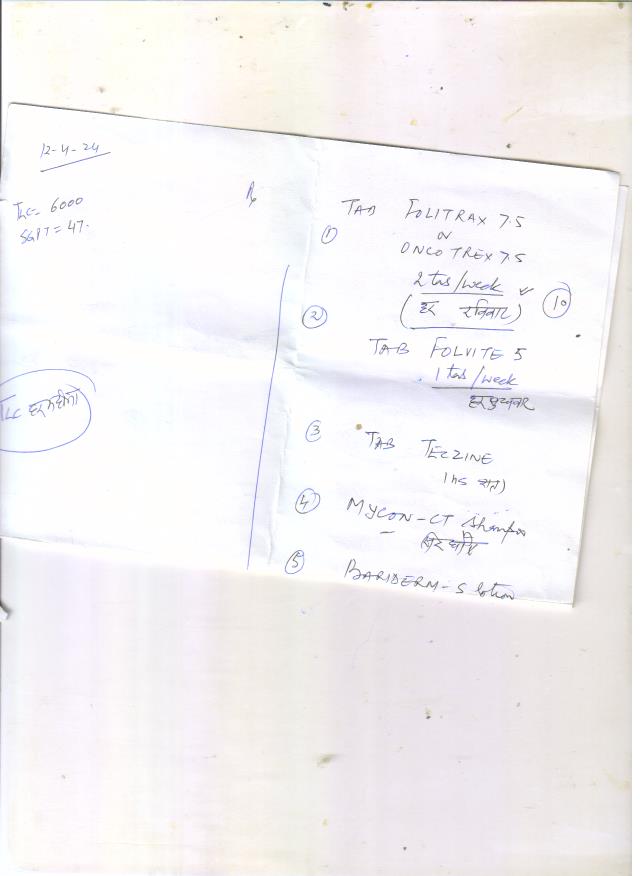 12-4-24
TLC- 6000
SGPT = 47.
Rx
① TAB FOLITRAX 7.5
or
ONCOTREX 7.5
2 tabs/week ✓
(हर रविवार) ⑩
② TAB FOLVITE 5
1 tab/week
हर
TLC हर महीने
③ TAB TECZINE
1 hs रात)
④ MYCON-CT Shampoo
सिर धोने
⑤ BARIDERM-S lotion